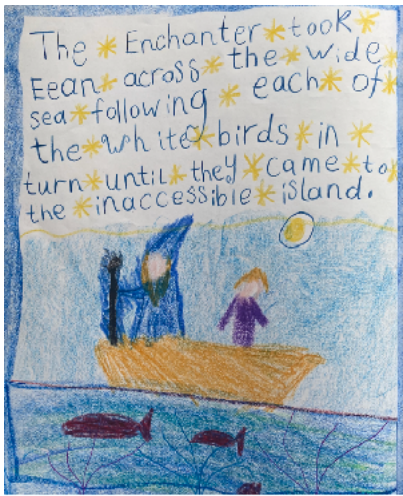 The Enchanter took
Eean across the wide
sea following each of
the white birds in
turn until they came to
the inaccessible island.